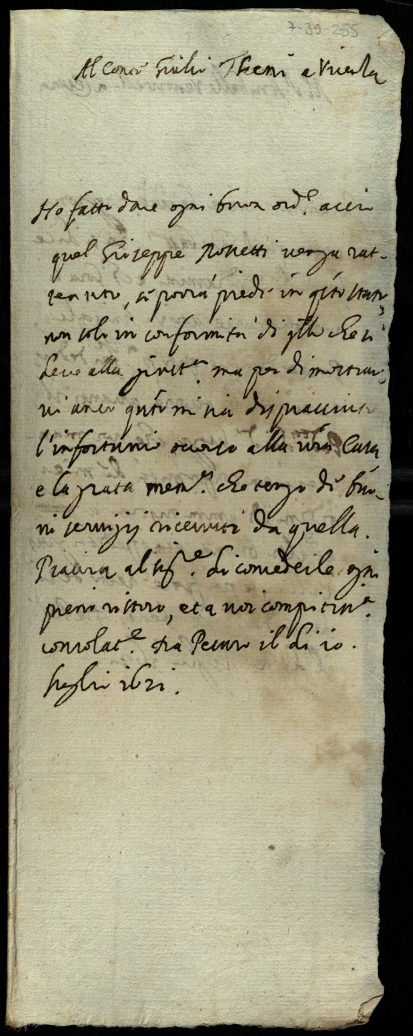 7-39-255
Al Conte Giulio Theni a
Ho fatto dare ogni buon ord.e acciò
quel Giuseppe venga rat-
tenuto, se porrà piedi in q.to stato,
non solo in conformità di q.llo che si
deve alla giust.a ma per dimostrar-
vi anco q.to mi sia dispiaciuto
l'infortunio occorso alla v.ra Casa
e la grata mem.a che tengo de buo-
ni servizij ricevuti da quella.
Piaccia al sig.re di concederle ogni
pieno ristoro, et a voi compitiss.a
consolat.e Da Pesaro il dì 10.
luglio 1621.